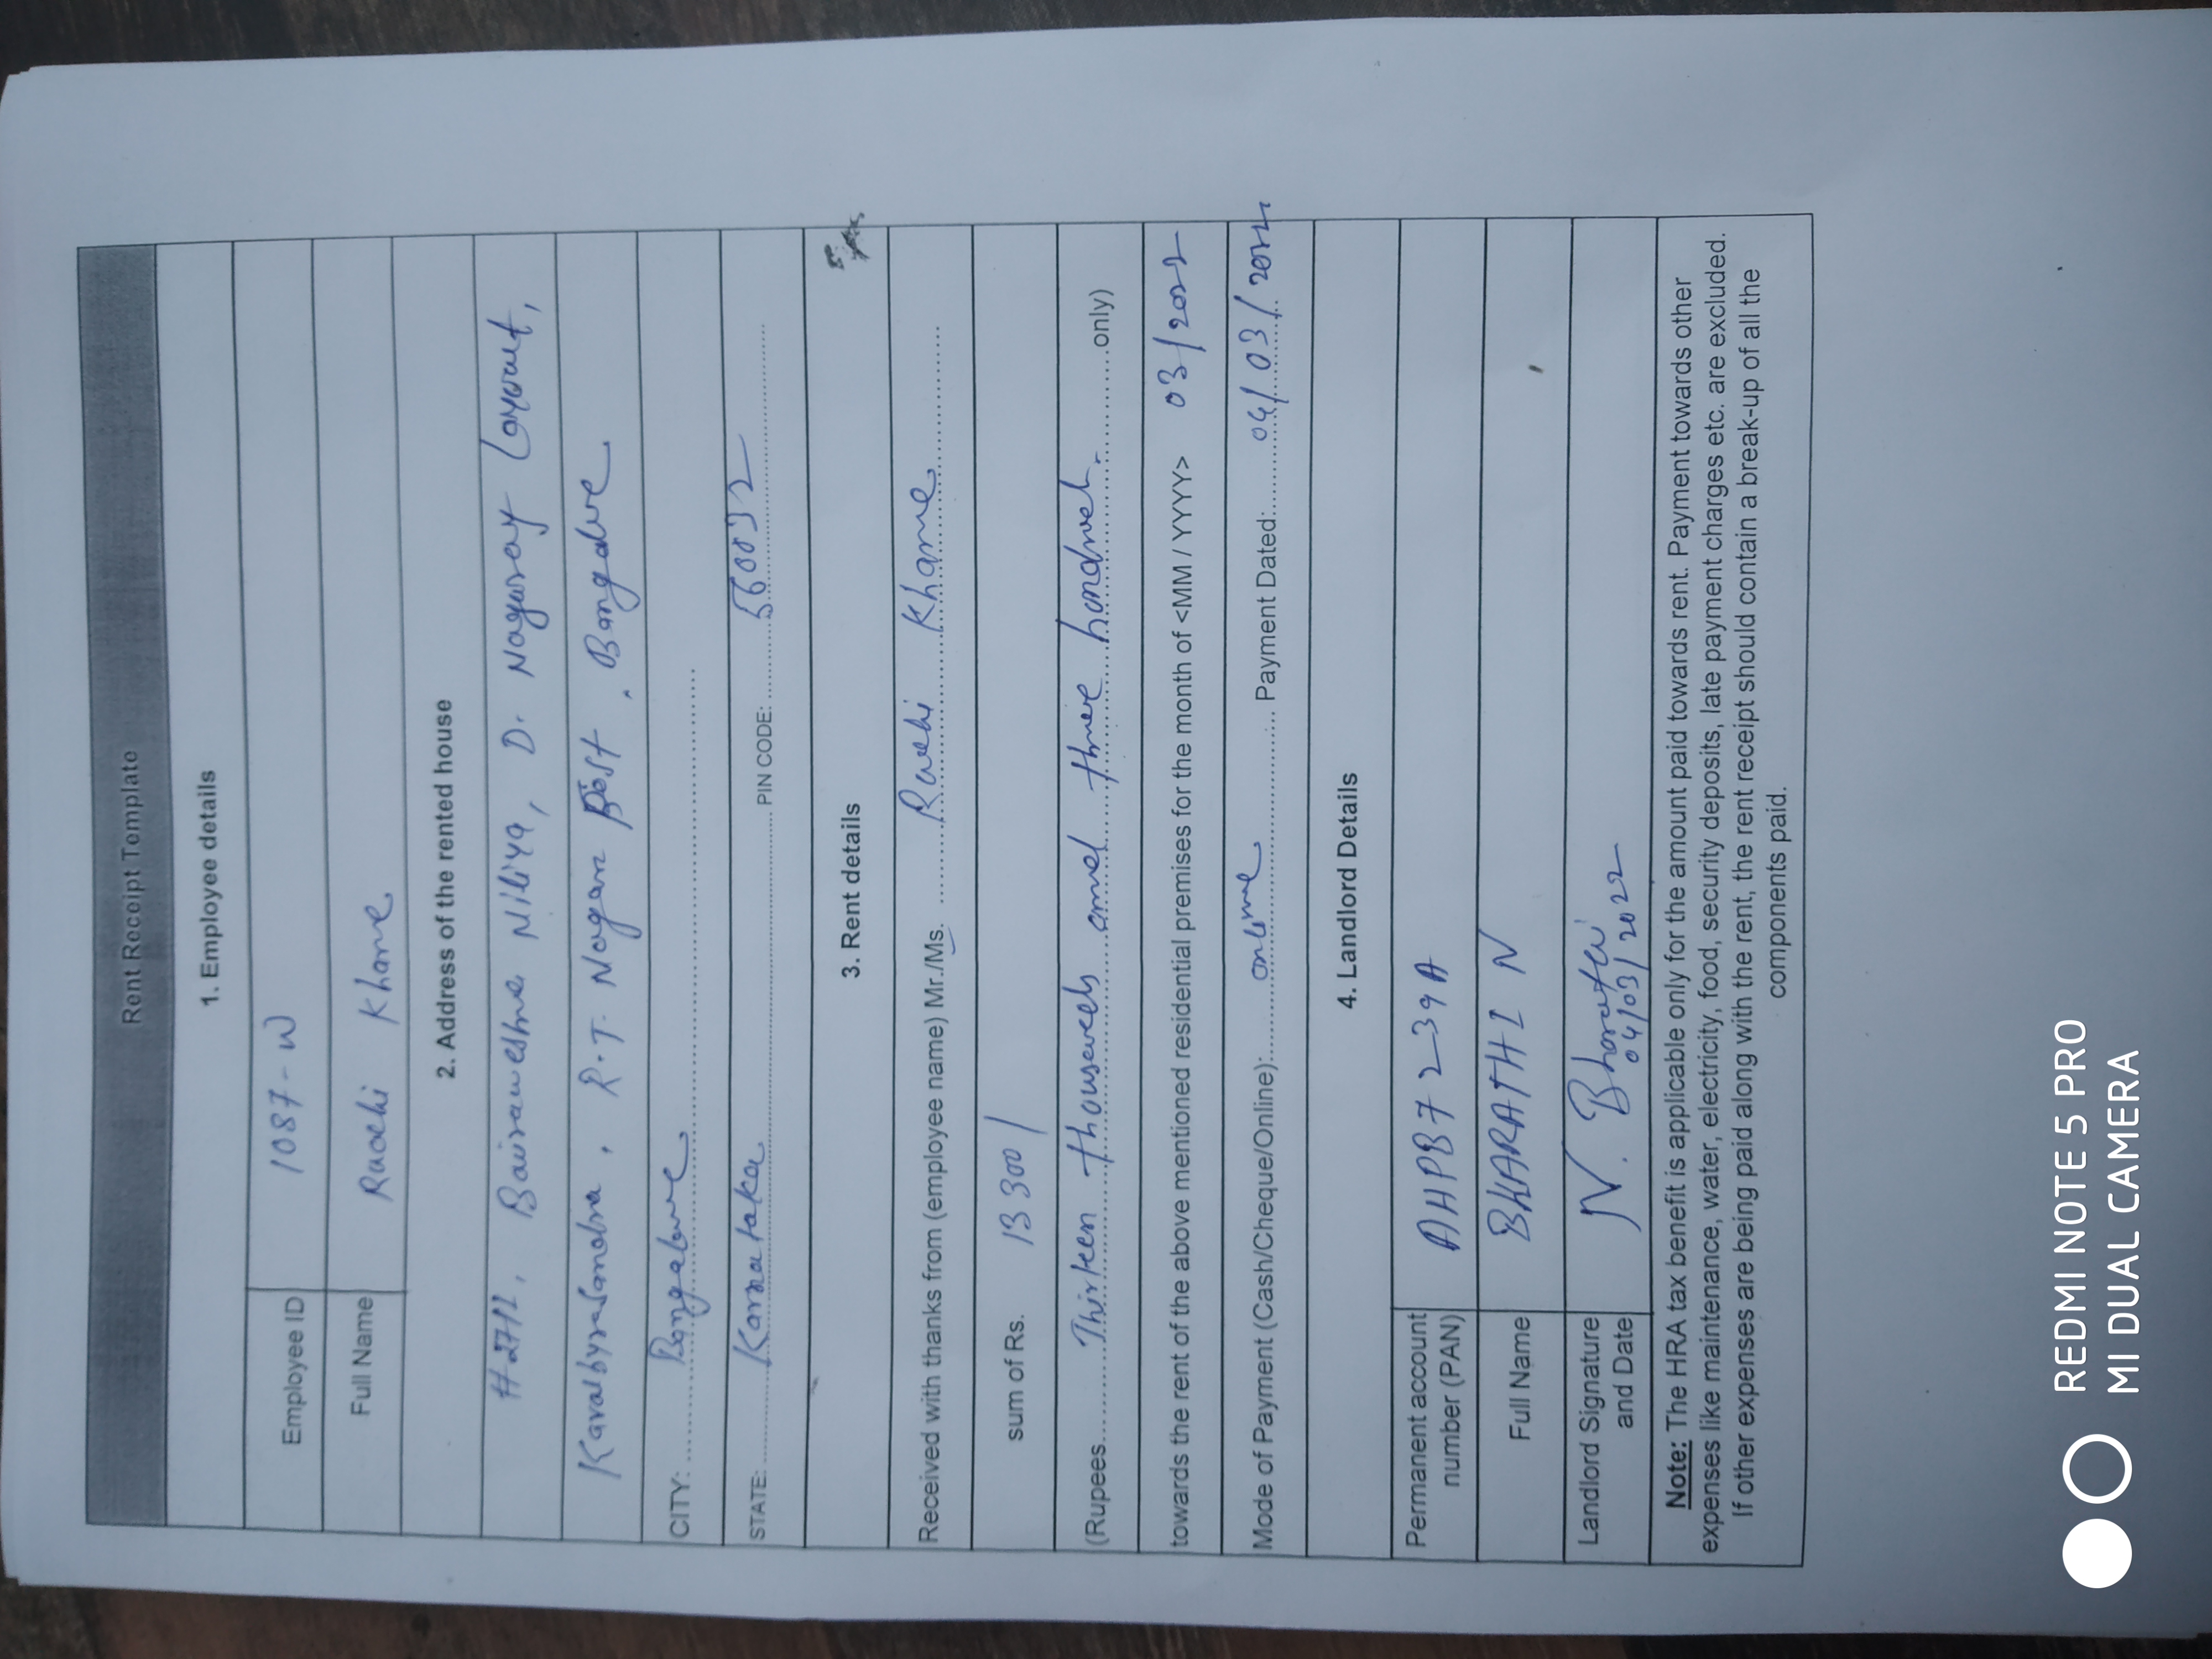 Rent Receipt Template
1. Employee details
Employee ID 1087-W
Full Name Ruchi Khare
2. Address of the rented house
#271/2, Bairaweshwa Niliya, D. Nagaraj Layout,
Kavalbyrasandra, R.T. Nagar Post, Bangalore
CITY: Bangalore
STATE: Karnataka PIN CODE: 560032
3. Rent details
Received with thanks from (employee name) Mr./Ms. Ruchi Khare
sum of Rs. 13300/
(Rupees Thirteen thousands and three hundred only)
towards the rent of the above mentioned residential premises for the month of <MM / YYYY> 03/2022
Mode of Payment (Cash/Cheque/Online): online Payment Dated: 04/03/2022
4. Landlord Details
Permanent account
number (PAN) AHPB7239A
Full Name BHARATHI N
Landlord Signature N. Bharathi
and Date 04/03/2022
Note: The HRA tax benefit is applicable only for the amount paid towards rent. Payment towards other
expenses like maintenance, water, electricity, food, security deposits, late payment charges etc. are excluded.
If other expenses are being paid along with the rent, the rent receipt should contain a break-up of all the
components paid.
REDMI NOTE 5 PRO
MI DUAL CAMERA